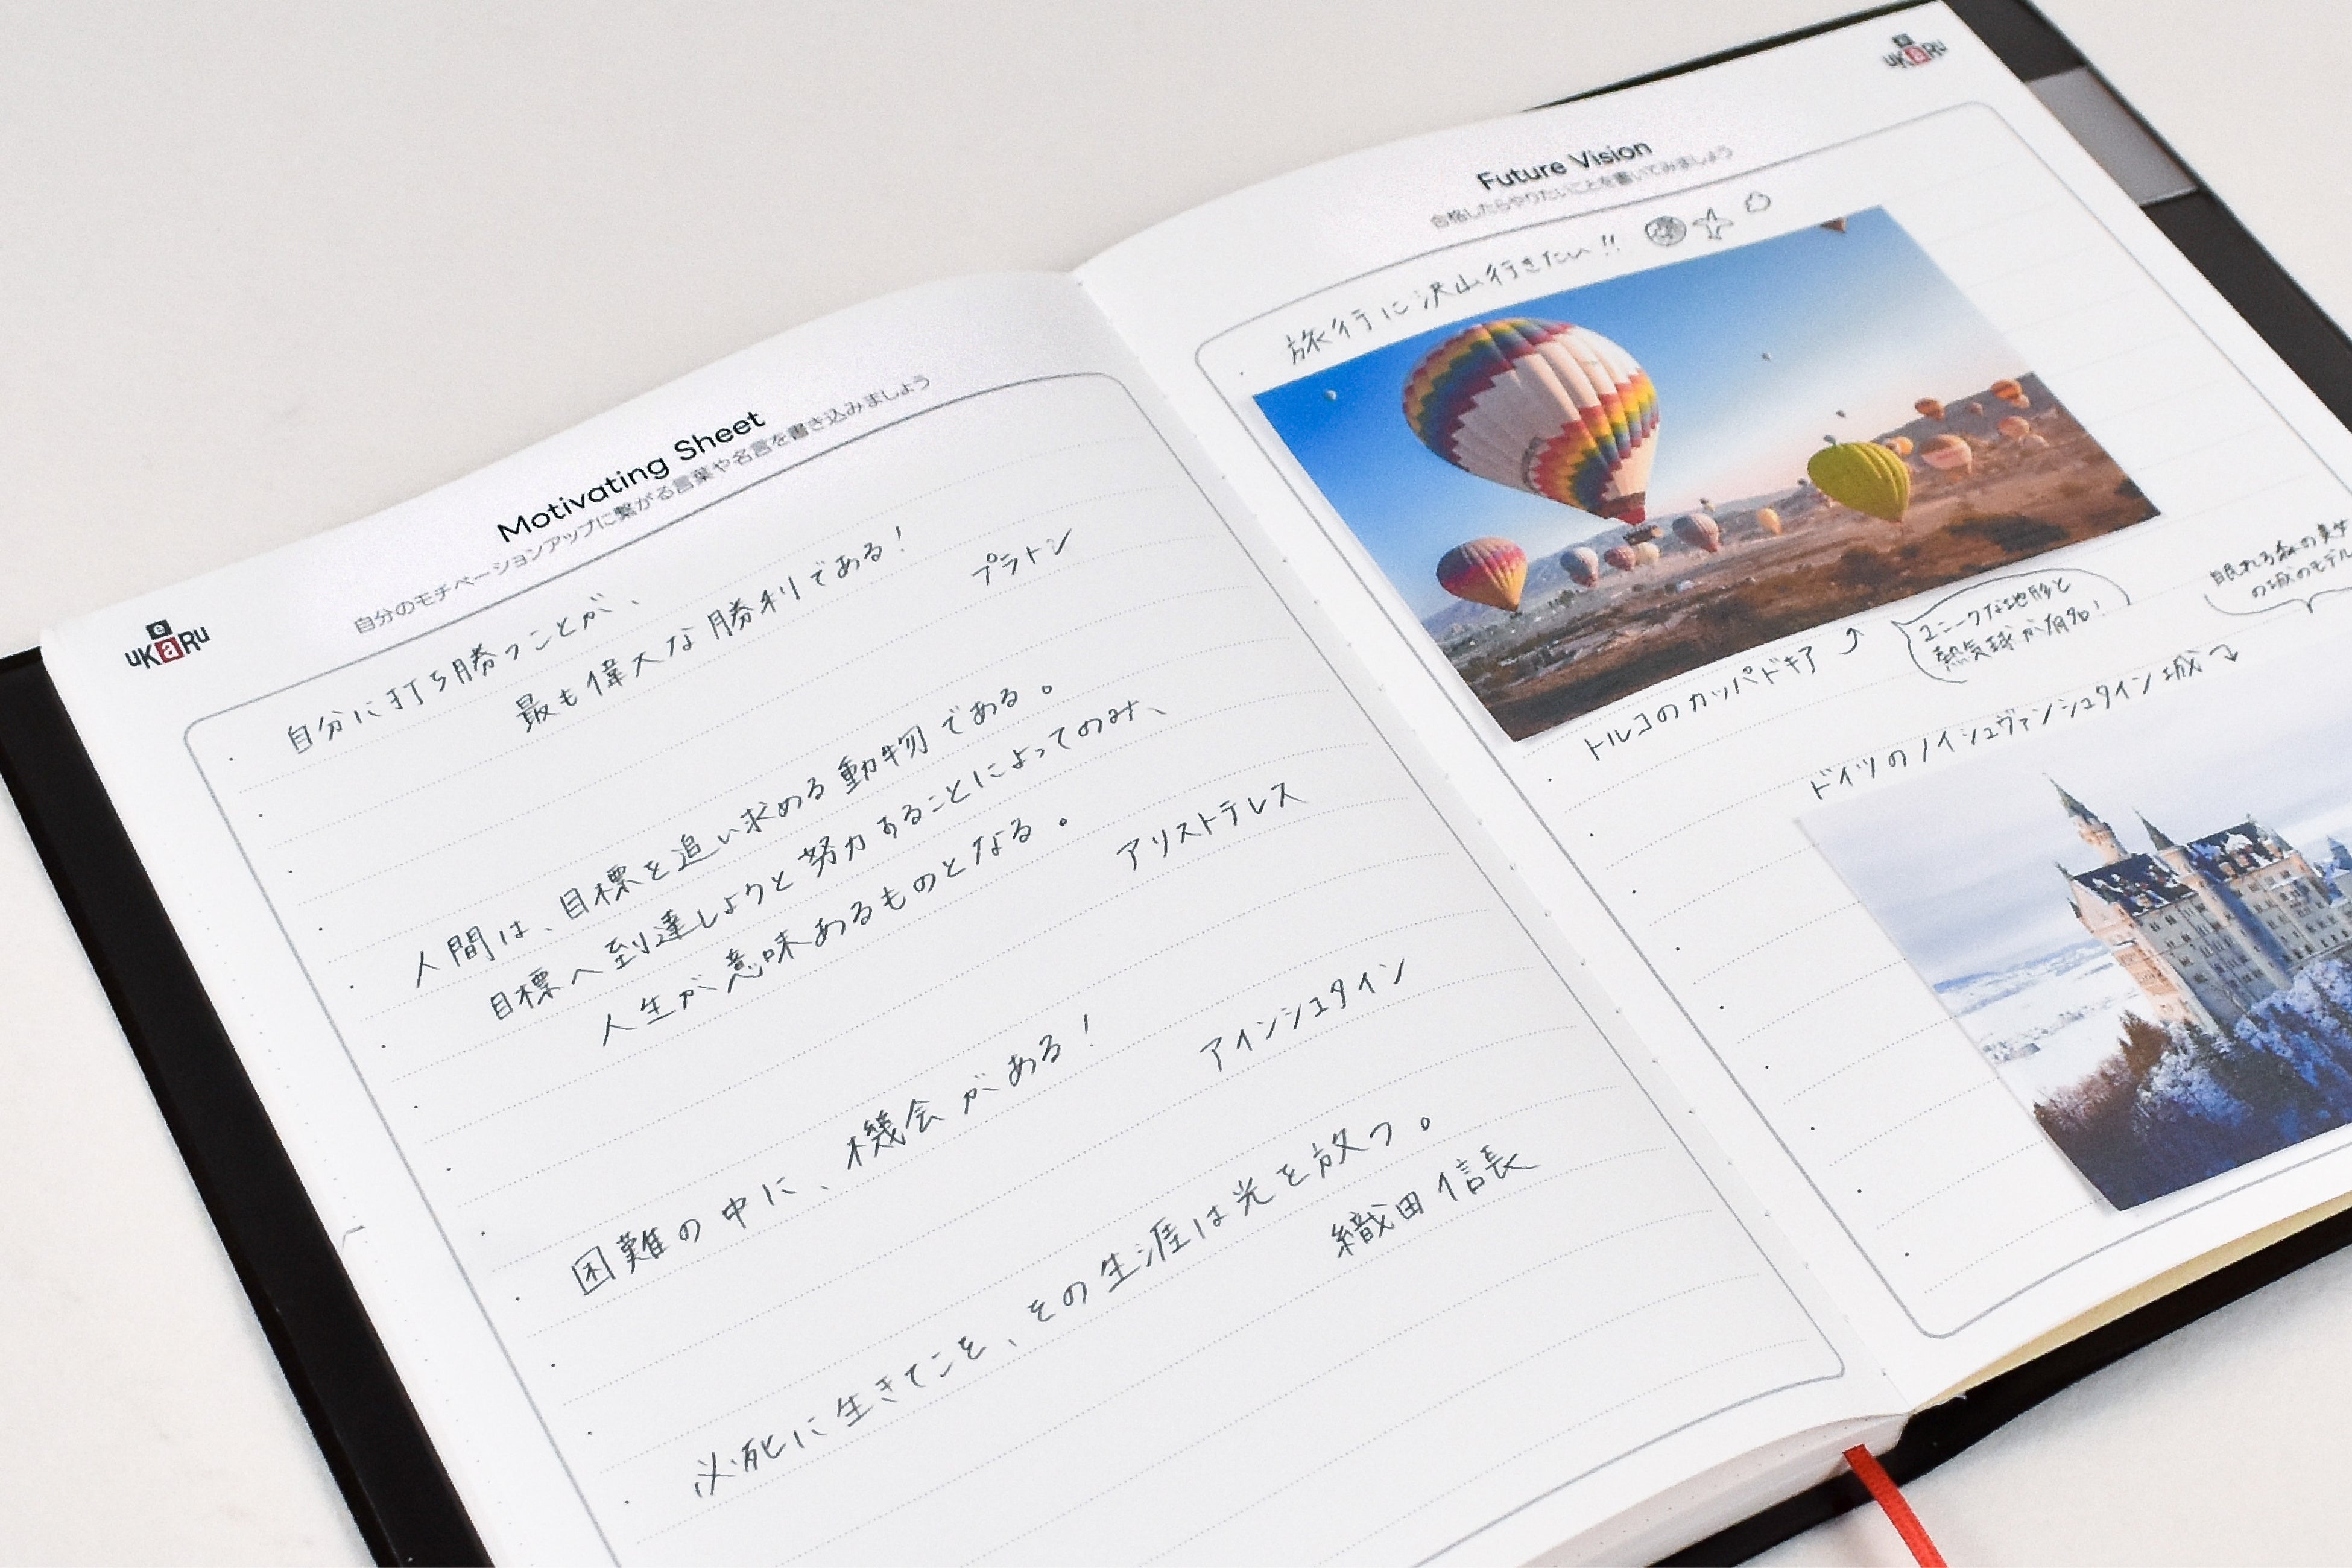 e
uKaRu
Motivating Sheet
自分のモチベーションアップに繋がる言葉や名言を書き込みましょう
自分に打ち勝つことが、
最も偉大な勝利である!
プラトン
人間は、目標を追い求める動物である。
目標へ到達しようと努力することによってのみ、
人生が意味あるものとなる。
アリストテレス
困難の中に、機会がある!
アインシュタイン
必死に生きてこそ、その生涯は光を放つ。
織田信長
e
uKaRu
Future Vision
合格したらやりたいことを書いてみましょう
旅行に沢山行きたい!!
トルコのカッパドキア
ユニークな地形と
熱気球が有名!
眠れる森の美女
の城のモデル
ドイツのノイシュヴァンシュタイン城